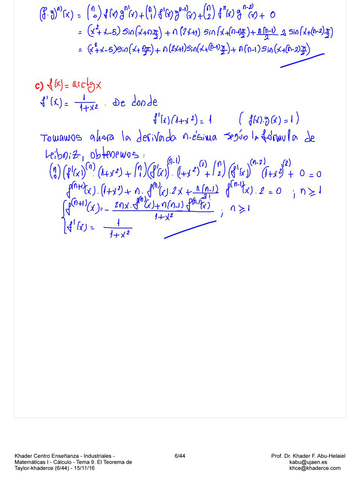 (f·g)ⁿ⁾(x) = (n 0) f(x) g^(n)(x) + (n 1) f'(x) g^(n-1)(x) + (n 2) f''(x) g^(n-2)(x) + 0
= (x²+x-5) sin(x+nπ/2) + n(2x+1) sin(x+(n-1)π/2) + n(n-1)/2 · 2 sin(x+(n-2)π/2)
= (x²+x-5) sin(x+nπ/2) + n(2x+1) sin(x+(n-1)π/2) + n(n-1) sin(x+(n-2)π/2)
c) f(x) = arctg x
f'(x) = 1/(1+x²). De donde
f'(x)(1+x²) = 1 (f(x).g(x) = 1)
Tomamos ahora la derivada n-ésima según la fórmula de
Leibniz, obtenemos:
(n 0)(f'(x))^(n) (1+x²) + (n 1)(f'(x))^(n-1) · (1+x²)^(1) + (n 2)(f'(x))^(n-2) (1+x²)^(2) + 0 = 0
f^(n+1)(x) · (1+x²) + n · f^(n)(x) · 2x + n(n-1)/2! f^(n-1)(x) · 2 = 0 ; n ≥ 1
{ f^(n+1)(x) = - (2nx · f^(n)(x) + n(n-1) f^(n-1)(x))/(1+x²) ; n ≥ 1
f'(x) = 1/(1+x²)
Khader Centro Enseñanza - Industriales -
Matemáticas I - Cálculo - Tema 9. El Teorema de
Taylor-khaderce (6/44) - 15/11/16
6/44
Prof. Dr. Khader F. Abu-Helaiel
kabu@ujaen.es
khce@khaderce.com